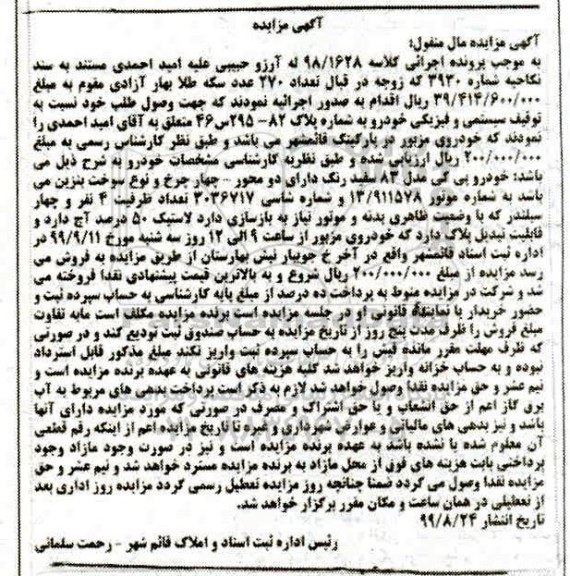 آگهی مزایده
آگهی مزایده مال منقول؛
به موجب پرونده اجرائی کلاسه ۹۸/۱۶۲۸ له آرزو حبیبی علیه امید احمدی مستند به سند
نکاحیه شماره ۳۹۳۰ که زوجه در قبال تعداد ۲۷۰ عدد سکه طلا بهار آزادی مقوم به مبلغ
۳۹/۴۱۴/۶۰۰/۰۰۰ ریال اقدام به صدور اجرائیه نمودند که جهت وصول طلب خود نسبت به
توقیف سیستمی و فیزیکی خودرو به شماره پلاک ۸۲- ۲۹۵س۴۶ متعلق به آقای امید احمدی را
نمودند که خودروی مزبور در پارکینگ قائمشهر می باشد و طبق نظر کارشناس رسمی به مبلغ
۲۰۰/۰۰۰/۰۰۰ ریال ارزیابی شده و طبق نظریه کارشناسی مشخصات خودرو به شرح ذیل می
باشد: خودرو پی کی مدل ۸۳ سفید رنگ دارای دو محور - چهار چرخ و نوع سوخت بنزین می
باشد به شماره موتور ۱۳/۹۱۱۵۷۸ و شماره شاسی ۳۰۳۶۷۱۷ تعداد ظرفیت ۴ نفر و چهار
سیلندر که با وضعیت ظاهری بدنه و موتور نیاز به بازسازی دارد لاستیک ۵۰ درصد آج دارد و
قابلیت تبدیل پلاک دارد که خودروی مزبور از ساعت ۹ الی ۱۲ روز سه شنبه مورخ ۹۹/۹/۱۱ در
اداره ثبت اسناد قائمشهر واقع در آخر خ جویبار نبش بهارستان از طریق مزایده به فروش می
رسد مزایده از مبلغ ۲۰۰/۰۰۰/۰۰۰ ریال شروع و به بالاترین قیمت پیشنهادی نقدا فروخته می
شد و شرکت در مزایده منوط به پرداخت ده درصد از مبلغ پایه کارشناسی به حساب سپرده ثبت و
حضور خریدار یا نماینده قانونی او در جلسه مزایده است برنده مزایده مکلف است مابه تفاوت
مبلغ فروش را ظرف مدت پنج روز از تاریخ مزایده به حساب صندوق ثبت تودیع کند و در صورتی
که ظرف مهلت مقرر مانده فیش را به حساب سپرده ثبت واریز نکند مبلغ مذکور قابل استرداد
نبوده و به حساب خزانه واریز خواهد شد کلیه هزینه های قانونی به عهده برنده مزایده است و
نیم عشر و حق مزایده نقدا وصول خواهد شد لازم به ذکر است پرداخت بدهی های مربوط به آب
برق گاز اعم از حق انشعاب و یا حق اشتراک و مصرف در صورتی که مورد مزایده دارای آنها
باشد و نیز بدهی های مالیاتی و عوارض شهرداری و غیره تا تاریخ مزایده اعم از اینکه رقم قطعی
آن معلوم شده یا نشده باشد به عهده برنده مزایده است و نیز در صورت وجود مازاد وجود
پرداختی بابت هزینه های فوق از محل مازاد به برنده مزایده مسترد خواهد شد و نیم عشر و حق
مزایده نقدا وصول می گردد ضمنا چنانچه روز مزایده تعطیل رسمی گردد مزایده روز اداری بعد
از تعطیلی در همان ساعت و مکان مقرر برگزار خواهد شد.
تاریخ انتشار ۹۹/۸/۲۴
رئیس اداره ثبت اسناد و املاک قائم شهر - رحمت سلمانی